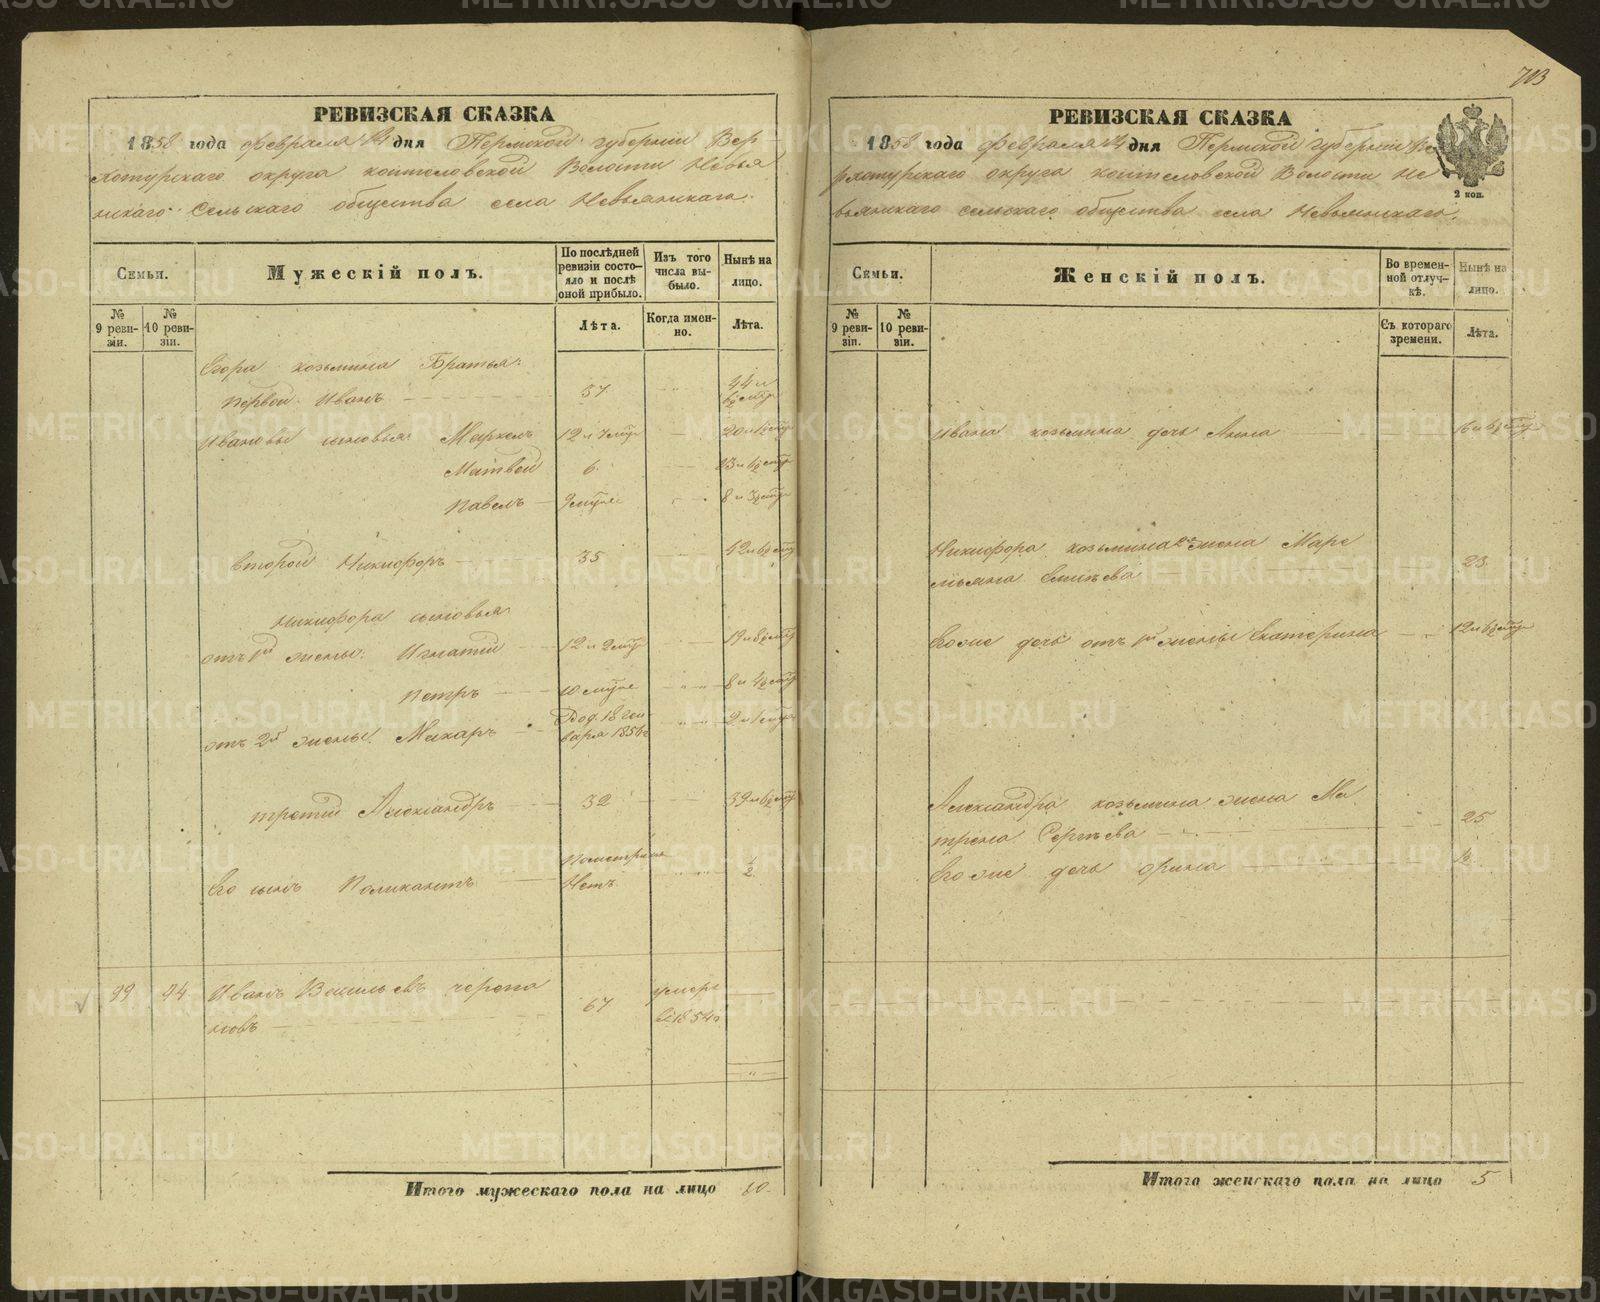 703
РЕВИЗСКАЯ СКАЗКА
1858 года февраля дня Пермской губернии Вер-
хотурскаго округа коптеловской Волости Невья
нскаго Сельскаго общества села Невьянскаго.
Семьи.
Мужескій полъ.
По послѣдней ревизіи состо-яло и послѣ оной прибыло.
Изъ того числа вы-было.
Нынѣ на лицо.
№ 9 реви-зіи.
№ 10 реви-зіи.
Лѣта.
Когда имен-но.
Лѣта.
Егора козьмина Братья:
первой Иванъ 37 44 и 6½ мцр
Ивановы сыновья: Маркелъ 12 и 7 мцр 20 и 1½ мцр
Матвей 6 13 и 6½ мцр
Павелъ 9 8 и 3½ мцр
второй Никифоръ 35 42 и 6½ мцр
Никифора сыновья
отъ 1й жены: Игнатий 12 и 2 мцр 19 и 8½ мцр
Петръ 10 8 и 4½ мцр
отъ 2й жены: Макаръ Род. 18 ген
варя 1856г 2 и 1 мцр
третий Александръ 32 39 и 6½ мцр
Его сынъ Поликантъ
Нетъ ½
99 94 Иванъ Васильевъ черепа
новъ 67 умеръ
въ 1854г
Итого мужескаго пола на лицо 10.
РЕВИЗСКАЯ СКАЗКА
1858 года февраля дня Пермской губернии Ве
рхотурскаго округа коптеловской Волости Не
вьянскаго сельскаго общества села Невьянскаго.
2 коп.
Семьи.
Женскій полъ.
Во времен-ной отлуч-кѣ.
Нынѣ на лицо.
№ 9 реви-зіи.
№ 10 реви-зіи.
Съ котораго времени.
Лѣта.
Ивана козьмина дочь Анна 16 и 6½ мцр
Никифора козьмина 2я жена Маре
мьяна 23
Егоже дочь отъ 1й жены Екатерина 12 и 6½ мцр
Александра козьмина жена Ма
трена Сергѣева 25
Егоже дочь Орина
Итого женскаго пола на лицо 5
METRIKI.GASO-URAL.RU